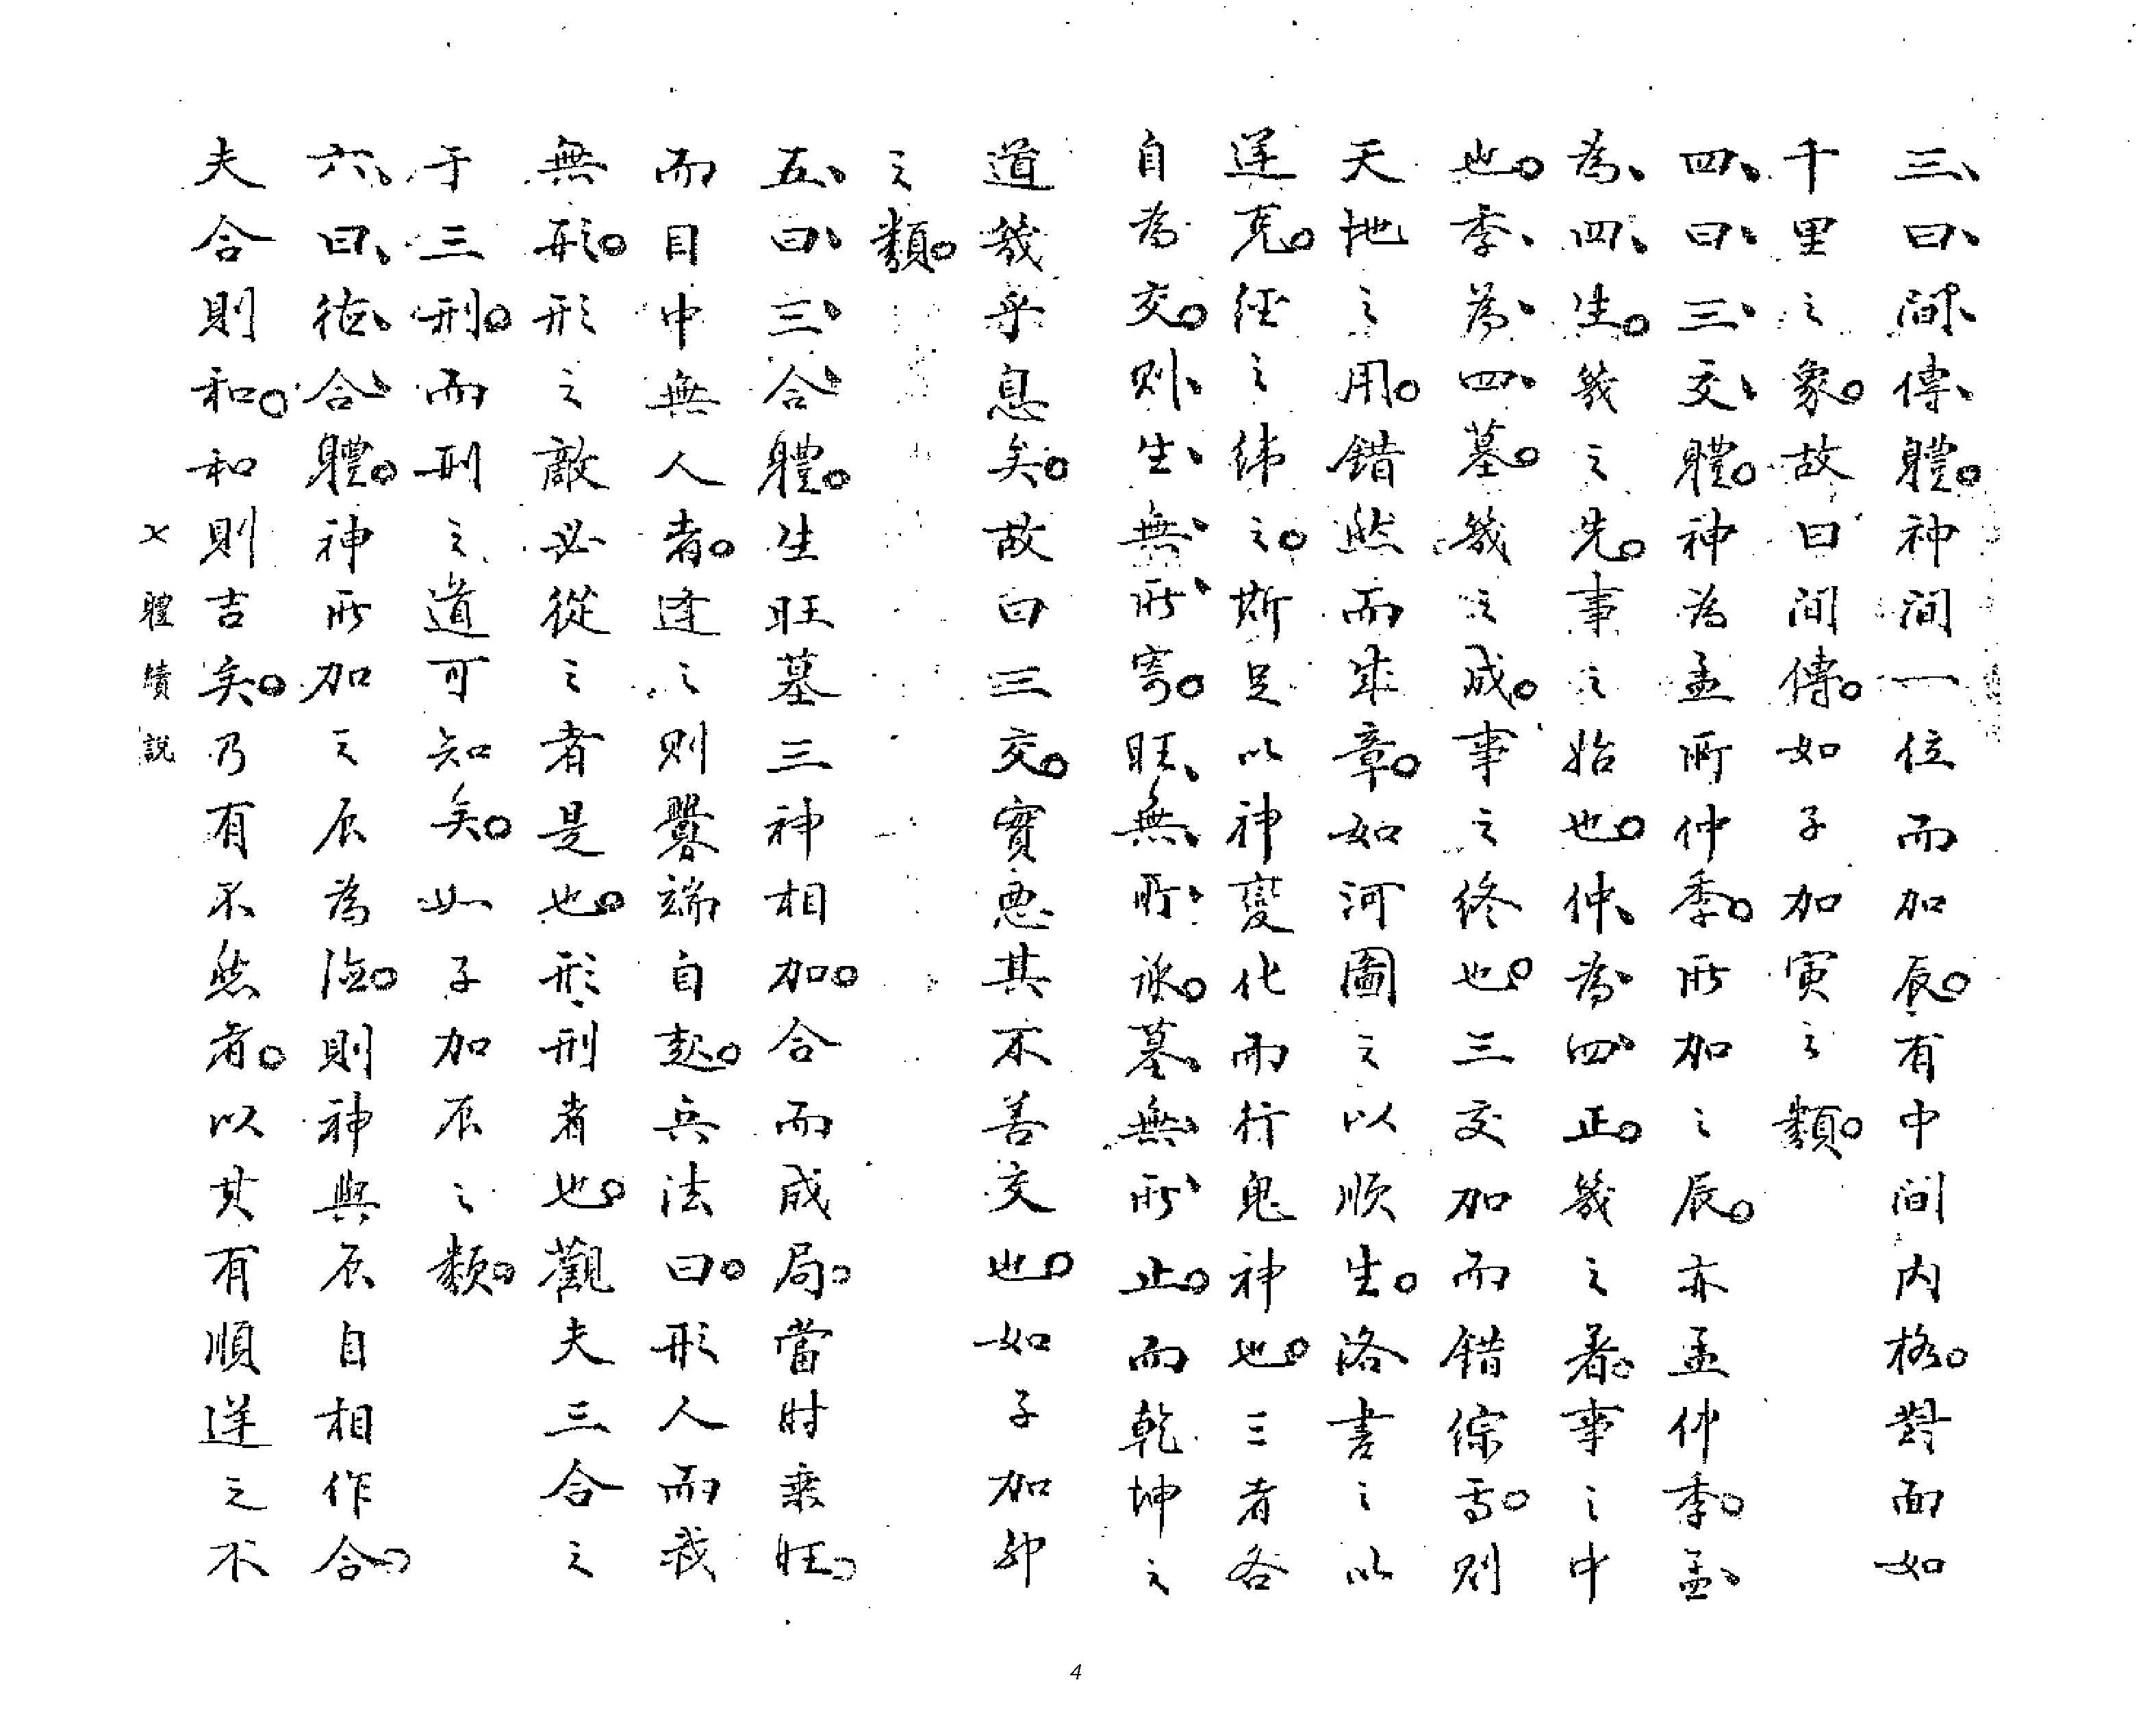 三、曰、間、傳、體。神間一位而加辰。有中間內格。對面如
千里之象。故曰間傳。如子加寅之類。
四、曰、三、交、體。神為孟所仲季。所加之辰。亦孟仲季。孟、
為、四、生。幾之先。事之始也。仲、為、四、正。幾之著。事之中
也。季、為、四、墓。幾之成。事之終也。三交加而錯綜焉。則
天地之用。錯然而成章。如河圖之以順生。洛書之以
逆克。經之緯之。斯足以神變化而行鬼神也。三者各
自為交。則、生、無、所、寄。旺、無、所、承。墓、無、所、止。而乾坤之
道幾乎息矣。故曰三交。實惡其不善交也。如子加卯
之類。
五、曰、三、合、體。生旺墓三神相加。合而成局。當时乘旺。
而目中無人者。逢之则釁端自起。兵法曰。形人而我
無形。形之敵必從之者是也。形刑者也。觀夫三合之
于三刑。而刑之道可知矣。如子加辰之類。
六、曰、德、合、體。神所加之辰為德。則神與辰自相作合。
夫合則和。和則吉矣。乃有不然者。以其有順逆之不
大體續說
4